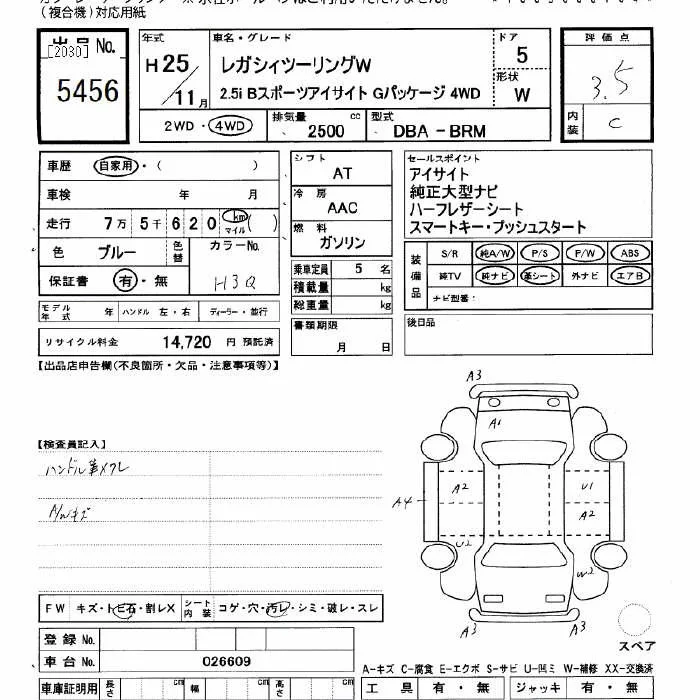 (複合機)対応用紙
出品 No.
[2030]
5456
年式
H25/11月
車名・グレード
レガシィツーリングW
2.5i Bスポーツアイサイト Gパッケージ 4WD
ドア
5
形状
W
2WD・4WD
排気量
2500 cc
型式
DBA-BRM
評価点
3.5
内装
C
車歴 自家用・( )
車検 年 月
走行 7万5千620 km マイル( )
色 ブルー 色替
カラーNo.
H3Q
保証書 有・無
モデル年式 年 ハンドル 左・右 ディーラー・並行
リサイクル料金 14,720 円 預託済
シフト
AT
冷房
AAC
燃料
ガソリン
乗車定員 5 名
積載量 kg
総重量 kg
書類期限
月 日
セールスポイント
アイサイト
純正大型ナビ
ハーフレザーシート
スマートキー・プッシュスタート
装備品
S/R 純A/W P/S P/W ABS
純TV 純ナビ 革シート 外ナビ エアB
ナビ型番:
後日品
【出品店申告欄(不良箇所・欠品・注意事項等)】
【検査員記入】
ハンドル革スレ
A/Wキズ
A3
A1
A4
A2
U1
A2
U2
W2
A3
A3
スペア
FW キズ・トビ石・割レX シート内装 コゲ・穴・汚レ・シミ・破レ・スレ
登録 No.
車台 No. 026609
A-キズ C-腐食 E-エクボ S-サビ U-凹ミ W-補修 XX-交換済
車庫証明用 長さ cm 幅 cm 高さ cm
工具 有・無 ジャッキ 有・無